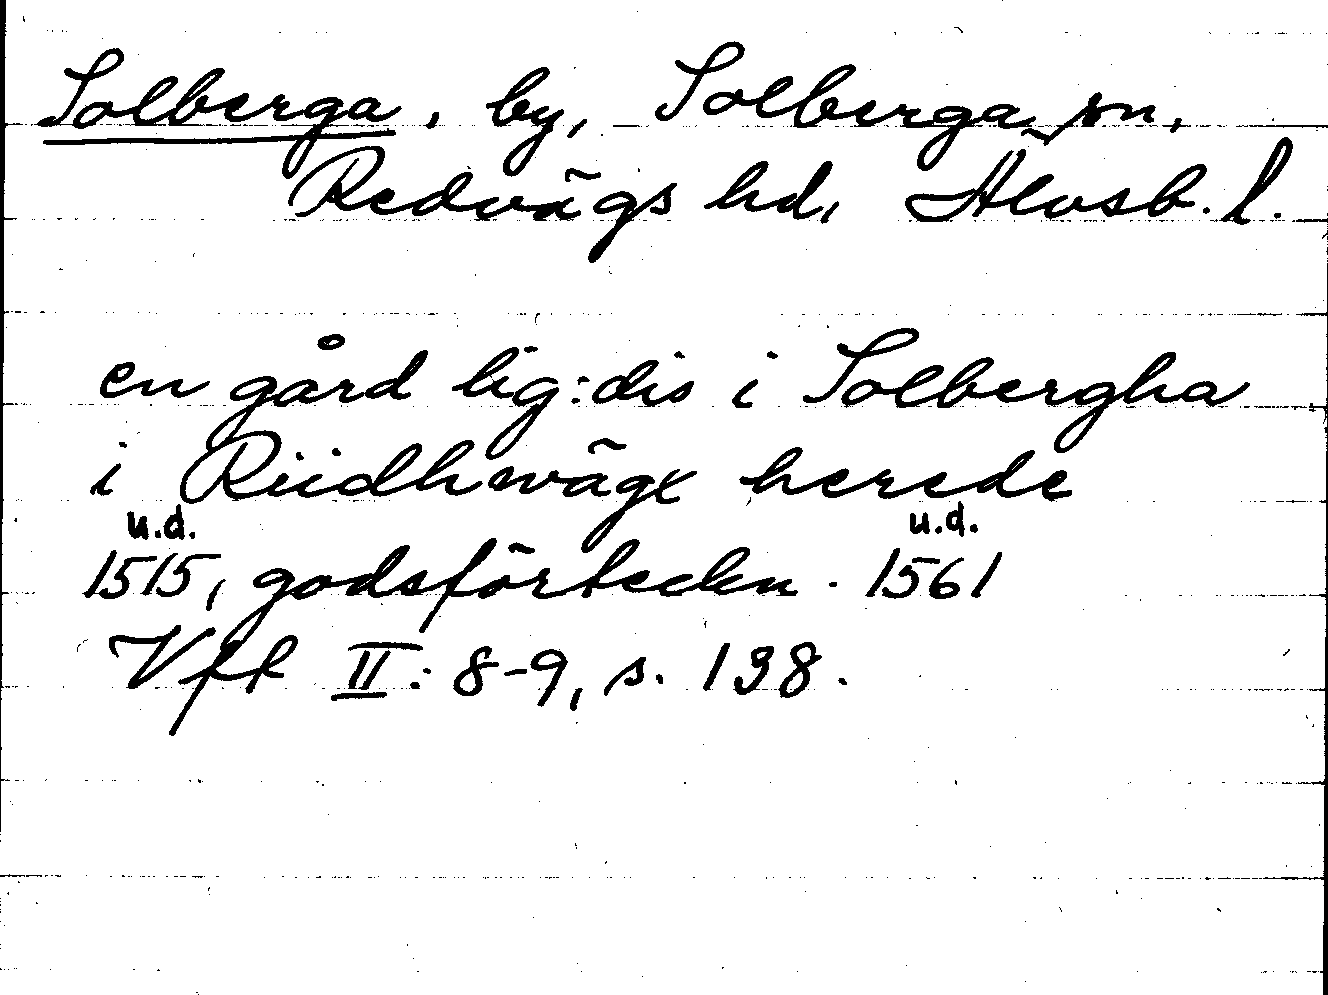 Solberga, by, Solberga sn,
Redvägs hd, Älvsb. l.
en gård lig:dis i Solbergha
i Riidhwägx herede
u.d. u.d.
1515, godsförteckn. 1561
Vft II: 8-9, s. 138.